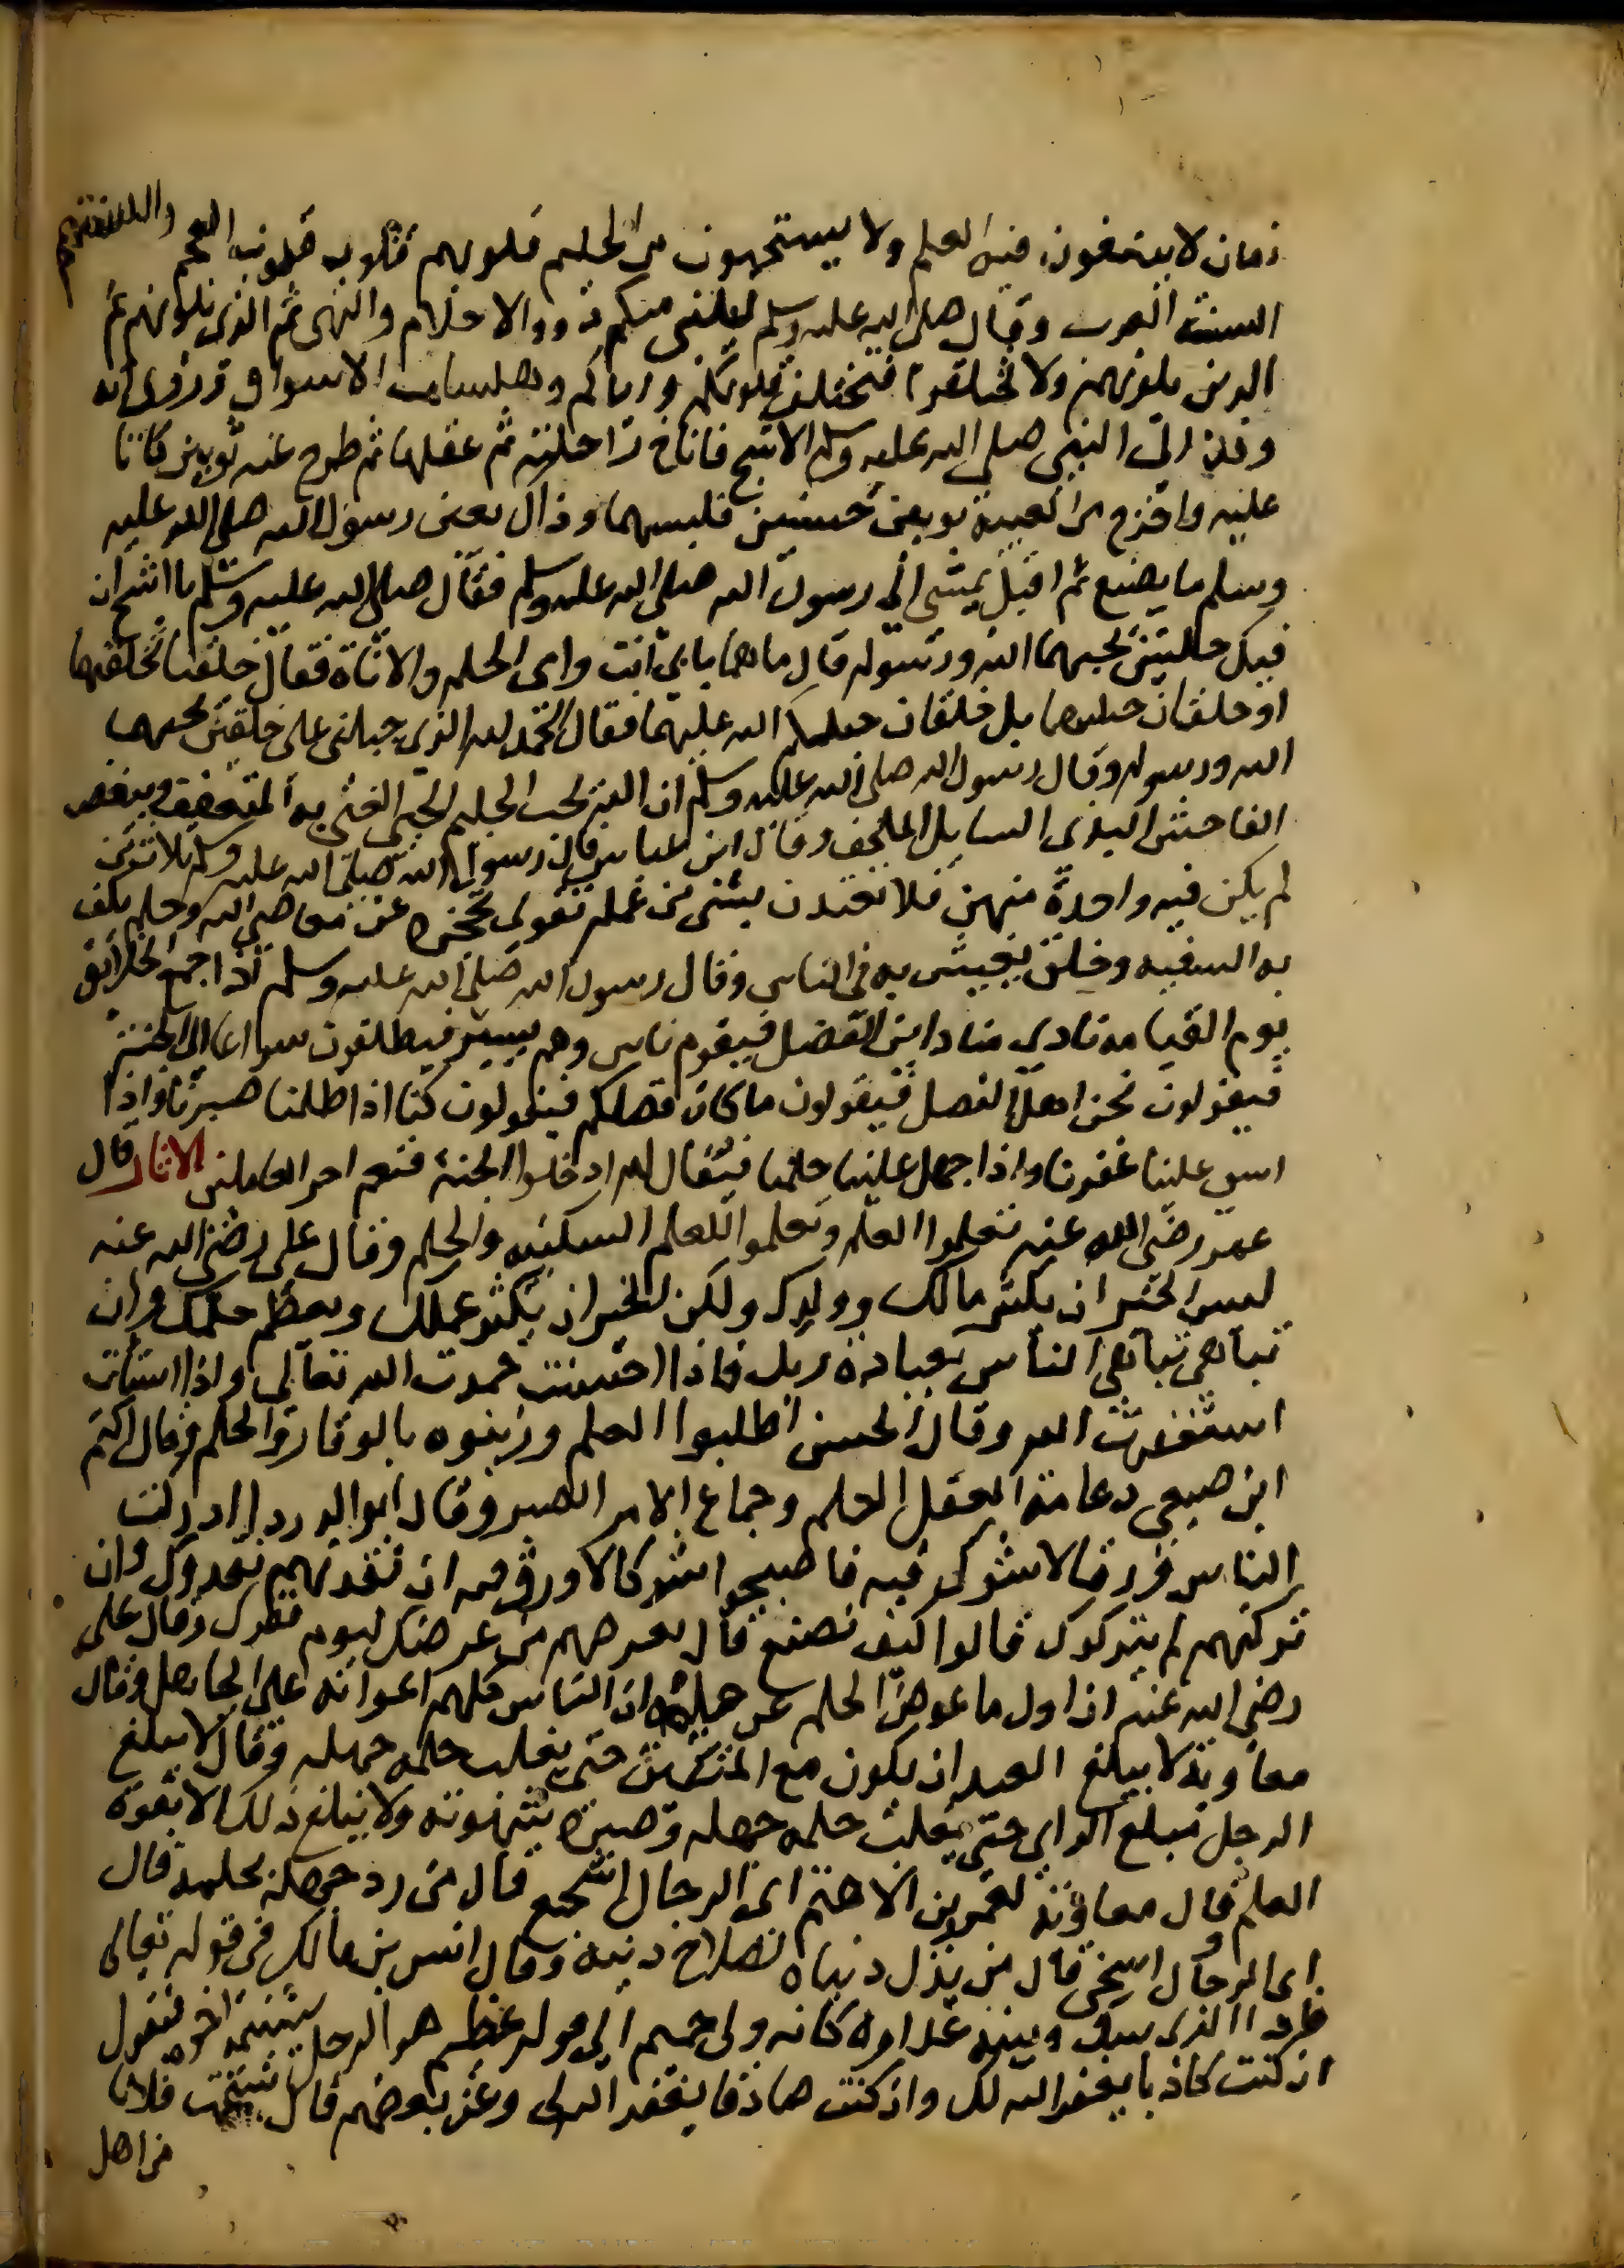 زمان لا يتبعون فيه العلم ولا يستحيون من الحليم قلوبهم قلوب العجم والسنتهم
السنة العرب وقال صلى الله عليه وسلم ليلينى منكم ذووا الاحلام والنهى ثم الذين يلونهم ثم
الذين يلونهم ولا تختلفوا فتختلف قلوبكم واياكم وهيشات الاسواق وروى انه
وفد الى النبي صلى الله عليه وسلم الاشج فاناخ راحلته ثم عقلها ثم طرح عنه ثوبين كانا
عليه واخرج من العيبة ثوبين حسنين فلبسهما وذاك بعين رسول الله صلى الله عليه
وسلم ما يصنع ثم اقبل يمشى الى رسول الله صلى الله عليه وسلم فقال صلى الله عليه وسلم يا اشج ان
فيك خلتين يحبهما الله ورسوله قال ما هما بابى انت وامى الحلم والاناة فقال خلقا تخلقتهما
او خلقان جبلتهما بل خلقان جبلك الله عليهما فقال الحمد لله الذي جبلنى على خلقين يحبهما
الله ورسوله وقال رسول الله صلى الله عليه وسلم ان الله يحب الحليم الحيي الغنى به المتعفف ويبغض
الفاحش البذى السايل الملحف وقال ابن عباس قال رسول الله صلى الله عليه وسلم ثلاث من
لم يكن فيه واحدة منهن فلا تعتدن بشئ من عمله تقوى تحجزه عن معاصى الله وحلم يكف
به السفيه وخلق يعيش به في الناس وقال رسول الله صلى الله عليه وسلم اذا جمع الخلايق
يوم القيامة نادى مناد اين الفضل فيقوم ناس وهم يسير فينطلقون سراعا الى الجنة
فيقولون نحن اهل الفضل فيقولون ما كان فضلكم فيقولون كنا اذا ظلمنا صبرنا واذا
اسى علينا غفرنا واذا جهل علينا حلمنا فيقال لهم ادخلوا الجنة فنعم اجر العاملين الاثار قال
عمر رضي الله عنه تعلموا العلم وتعلموا للعلم السكينه والحلم وقال على رضي الله عنه
ليس الخير ان يكثر مالك وولدك ولكن الخير ان يكثر عملك ويعظم حلمك وان
تباهى تباهى الناس بعبادة ربك فاذا احسنت حمدت الله تعالى واذا اسأت
استغفرت الله وقال الحسن اطلبوا العلم وزينوه بالوقار والحلم وقال اكثم
ابن صيفى دعامة العقل الحلم وجماع الامر الصبر وقال ابو الدردا ادركت
الناس ورقا لا شوك فيه فاصبحوا شوكا لا ورق فيه ان تنقدهم نقدوك وان
تركتهم لم يتركوك قالوا كيف نصنع قال نقرضهم من عرضك ليوم فقرك وقال على
رضي الله عنه ان اول ما عوض الحليم عن حلمه ان الناس كلهم اعوانه على الجاهل وقال
معاوية لا يبلغ العبد ان يكون مع حتى يغلب حلمه جهله وقال لا يبلغ
الرجل مبلغ الراى حتى يغلب حلمه جهله وصبره شهوته ولا يبلغ ذلك الا بقوة
العلم وقال معاوية لعمرو بن الاهتم اى الرجال اشجع قال من رد جهله بحلمه قال
اى الرجال اسخى قال من بذل دنياه لصلاح دينه وقال انس بن مالك فى قوله تعالى
فاذا الذى بينك وبينه عداوة كانه ولى حميم الى قوله عظيم هو الرجل يشتمه اخوه فيقول
ان كنت كاذبا يغفر الله لك وان كنت صادقا يغفر الله لى وعن بعضهم قال شتمت فلانا
من اهل